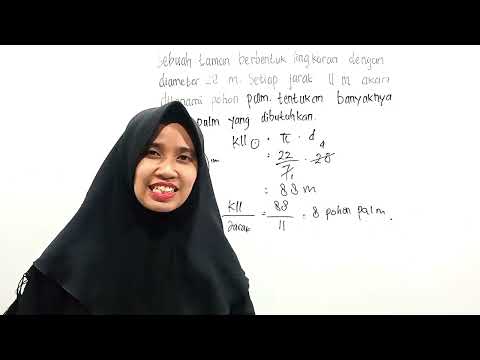 Sebuah taman berbentuk lingkaran dengan
diameter 28 m. Setiap jarak 11 m akan
ditanami pohon palm. tentukan banyaknya
palm yang dibutuhkan.
Kll O = π . d
= 22/7 . 28 4
= 88 m
Kll/Jarak = 88/11 = 8 pohon palm.